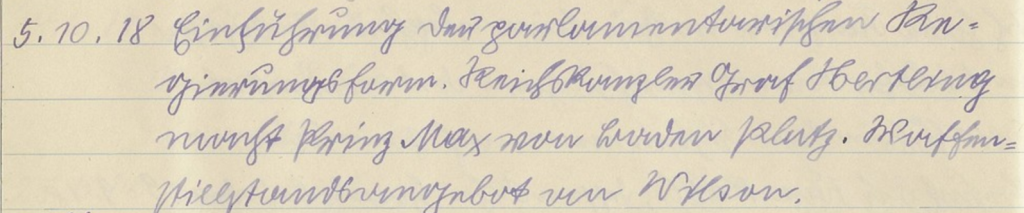 5.10.18 Einführung der parlamentarischen Re-
gierungsform. Reichskanzler Graf Hertling
macht Prinz Max von Baden Platz. Waffen-
stillstandsangebot an Wilson.